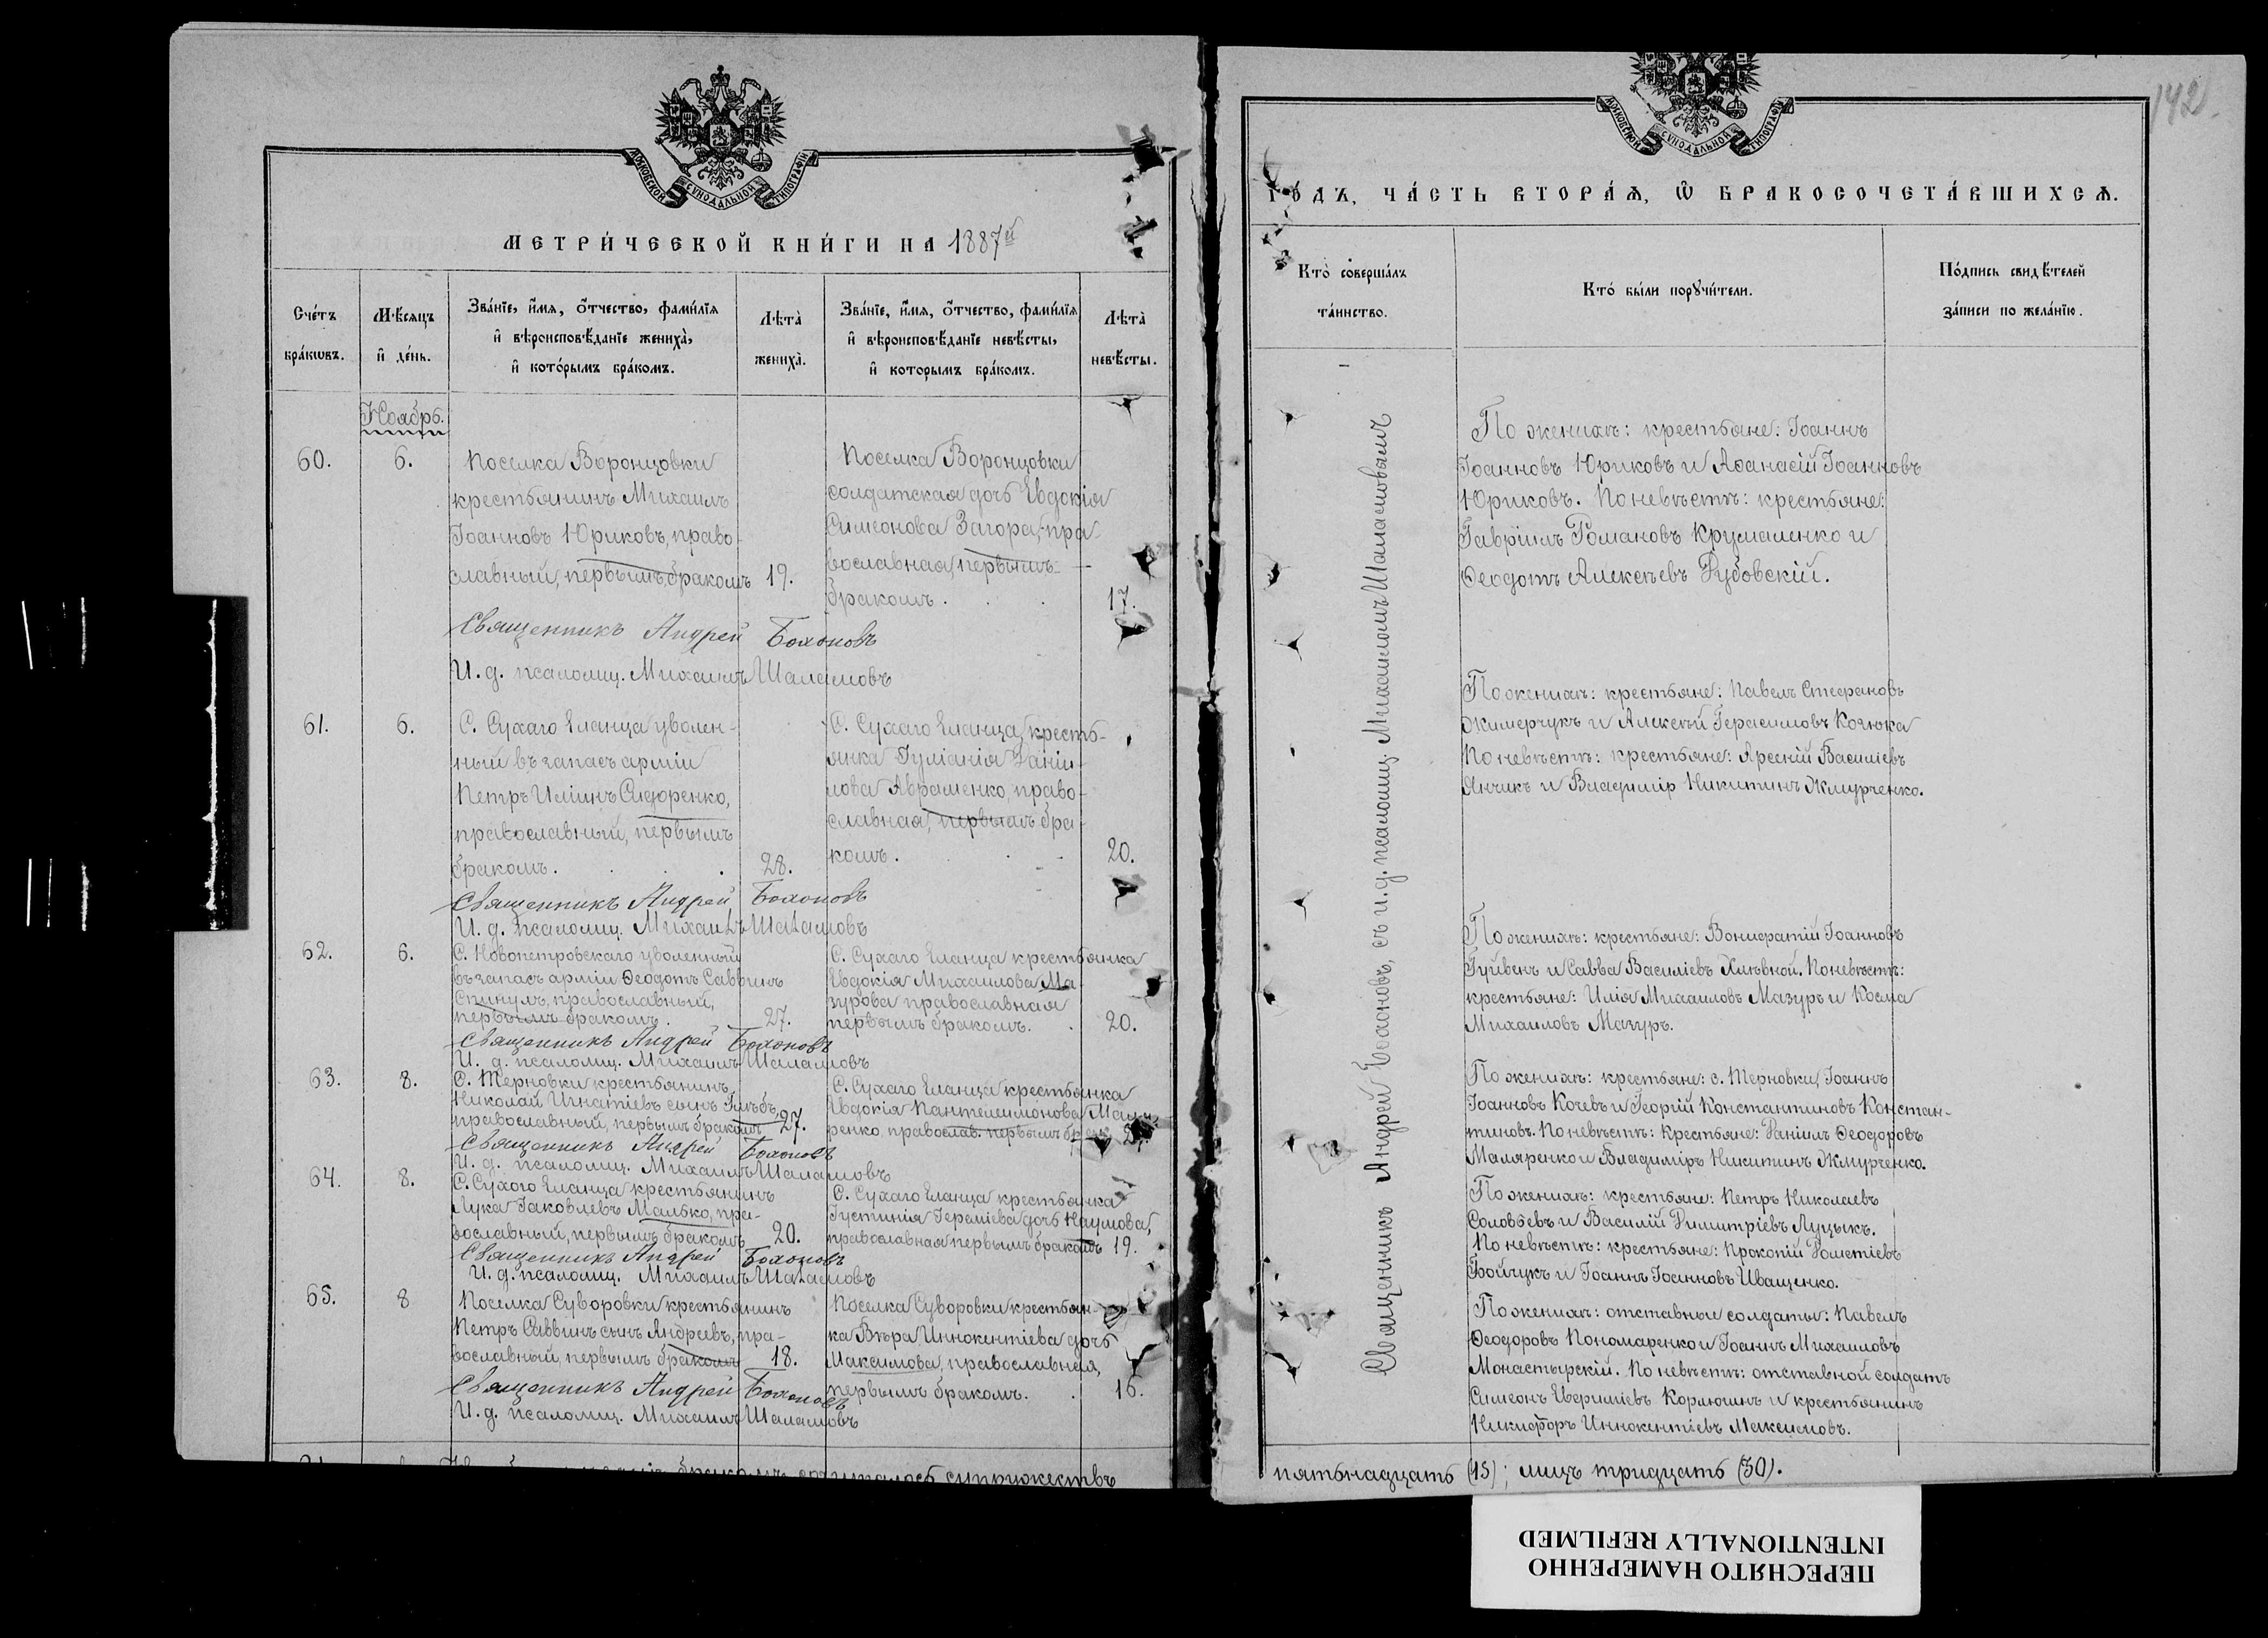 МОСКОВСКОЙ СѴНОДАЛЬНОЙ ТИПОГРАФІИ
МЕТРИ́ЧЕСКОЙ КНИ́ГИ НА 1887й
Сче́тъ бра́кѡвъ.
Мѣ́сяцъ и҆ де́нь.
Зва́нїе, и҆́мя, ѻ҆́тчество, фами́лїя
и҆ вѣроисповѣ́данїе жениха̀,
и҆ кото́рымъ бра́комъ.
Лѣта̀ жениха̀.
Зва́нїе, и҆́мя, ѻ҆́тчество, фами́лїя
и҆ вѣроисповѣ́данїе невѣ́сты,
и҆ которымъ бра́комъ.
Лѣта̀ невѣ́сты.
Ноябрь.
60. 6.
Поселка Воронцовки
крестьянинъ Михаилъ
Іоанновъ Юриковъ, право-
славный, первымъ бракомъ 19.
Поселка Воронцовки
солдатская дочь Евдокія
Симеонова Загора, пра-
вославная, первымъ
бракомъ. 17.
Священникъ Андрей Бохоновъ
И. д. псаломщ. Михаилъ Шаламовъ
61. 6.
С. Сухаго Еланца уволен-
ный въ запасъ арміи
Петръ Иліинъ Сидоренко,
православный, первымъ
бракомъ. 28.
С. Сухаго Еланца, кресть-
янка Іуліанія Даніи-
лова Авраменко, право-
славная, первымъ бра-
комъ. 20.
Священникъ Андрей Бохоновъ
И. д. псаломщ. Михаилъ Шаламовъ
62. 6.
С. Новопетровскаго уволенный
въ запасъ арміи Ѳеодотъ Саввинъ
Спинулъ, православный,
первымъ бракомъ. 27.
С. Сухаго Еланца крестьянка
Евдокія Михаилова Ма-
зурова православная
первымъ бракомъ. 20.
Священникъ Андрей Бохоновъ
И. д. псаломщ. Михаилъ Шаламовъ
63. 8.
С. Терновки крестьянинъ
Николай Игнатіевъ сынъ
православный, первымъ бракомъ 27.
С. Сухаго Еланца крестьянка
Евдокія Пантелеимонова
ренко, православ. первымъ брак.
Священникъ Андрей Бохоновъ
И. д. псаломщ. Михаилъ Шаламовъ
64. 8.
С. Сухого Еланца крестьянинъ
Лука Іаковлевъ Малько, пра-
вославный, первымъ бракомъ 20.
С. Сухаго Еланца крестьянка
Іустинія Іереміева дочь Наумова,
православная первымъ бракомъ 19.
Священникъ Андрей Бохоновъ
И. д. псаломщ. Михаилъ Шаламовъ
65. 8
Поселка Суворовки крестьянинъ
Петръ Саввинъ сынъ Андреевъ, пра-
вославный, первымъ бракомъ 18.
Поселка Суворовки крестьян-
ка Вѣра Иннокентіева дочь
Максимова, православная,
первымъ бракомъ. 16.
Священникъ Андрей Бохоновъ
И. д. псаломщ. Михаилъ Шаламовъ
бракомъ сочеталось супружествъ
142
МОСКОВСКОЙ СѴНОДАЛЬНОЙ ТИПОГРАФІИ
ГО́ДЪ, ЧА́СТЬ ВТОРА́Ѧ, Ѽ БРАКОСОЧЕТА́ВШИХСѦ.
Кто̀ соверша́лъ
та́инство.
Кто̀ бы́ли порꙋчи́тели.
По́дпись свидѣ́телей
за́писи по жела́нїю.
Священникъ Андрей Бохоновъ, съ и. д. псаломщ. Михаиломъ Шаламовымъ
По женихѣ: крестьяне: Іоаннъ
Іоанновъ Юриковъ и Аѳанасій Іоанновъ
Юриковъ. По невѣстѣ: крестьяне:
Гавріилъ Романовъ Крумаленко и
Ѳеодотъ Алексѣевъ Дубовскій.
По женихѣ: крестьяне: Павелъ Стефановъ
Жимерчукъ и Алексѣй Герасимовъ Козюка
По невѣстѣ: крестьяне: Арсеній Василіевъ
Янчикъ и Владиміръ Никитинъ Жмурченко.
По женихѣ: крестьяне: Вонифатій Іоанновъ
Гуйвенъ и Савва Василіевъ Хлѣвной. По невѣстѣ:
крестьяне: Илія Михаиловъ Мазуръ и Косма
Михаиловъ Мазуръ.
По женихѣ: крестьяне: с. Терновки, Іоаннъ
Іоанновъ Кочевъ и Георгій Константиновъ Констан-
тиновъ. По невѣстѣ: Крестьяне: Даніилъ Ѳеодоровъ
Маляренко и Владиміръ Никитинъ Жмурченко.
По женихѣ: крестьяне: Петръ Николаевъ
Соловьевъ и Василій Димитріевъ Луцыкъ.
По невѣстѣ: крестьяне: Прокопій Дометіевъ
Бойчукъ и Іоаннъ Іоанновъ Иващенко.
По женихѣ: отставные солдаты: Павелъ
Ѳеодоровъ Пономаренко и Іоаннъ Михаиловъ
Монастырскій. По невѣстѣ: отставной солдатъ
Симеонъ Евѳиміевъ Кормюшинъ и крестьянинъ
Никифоръ Иннокентіевъ Максимовъ.
пятьнадцать (15); лицъ тридцать (30).
ПЕРЕСНЯТО НАМЕРЕННО
INTENTIONALLY REFILMED